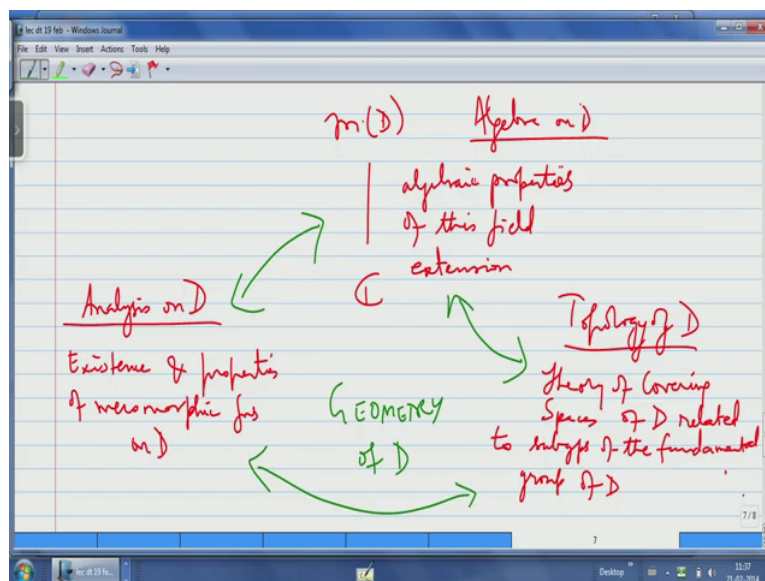 lec dt 19 feb - Windows Journal
File Edit View Insert Actions Tools Help
m(D) Algebra on D
algebraic properties
of this field
extension
ℂ
Analysis on D
Existence & properties
of meromorphic fns
on D
GEOMETRY
of D
Topology of D
Theory of Covering
Spaces of D related
to subgps of the fundamental
group of D
7/8
7
lec dt 19 fe...
Desktop
11:37
21-02-2014